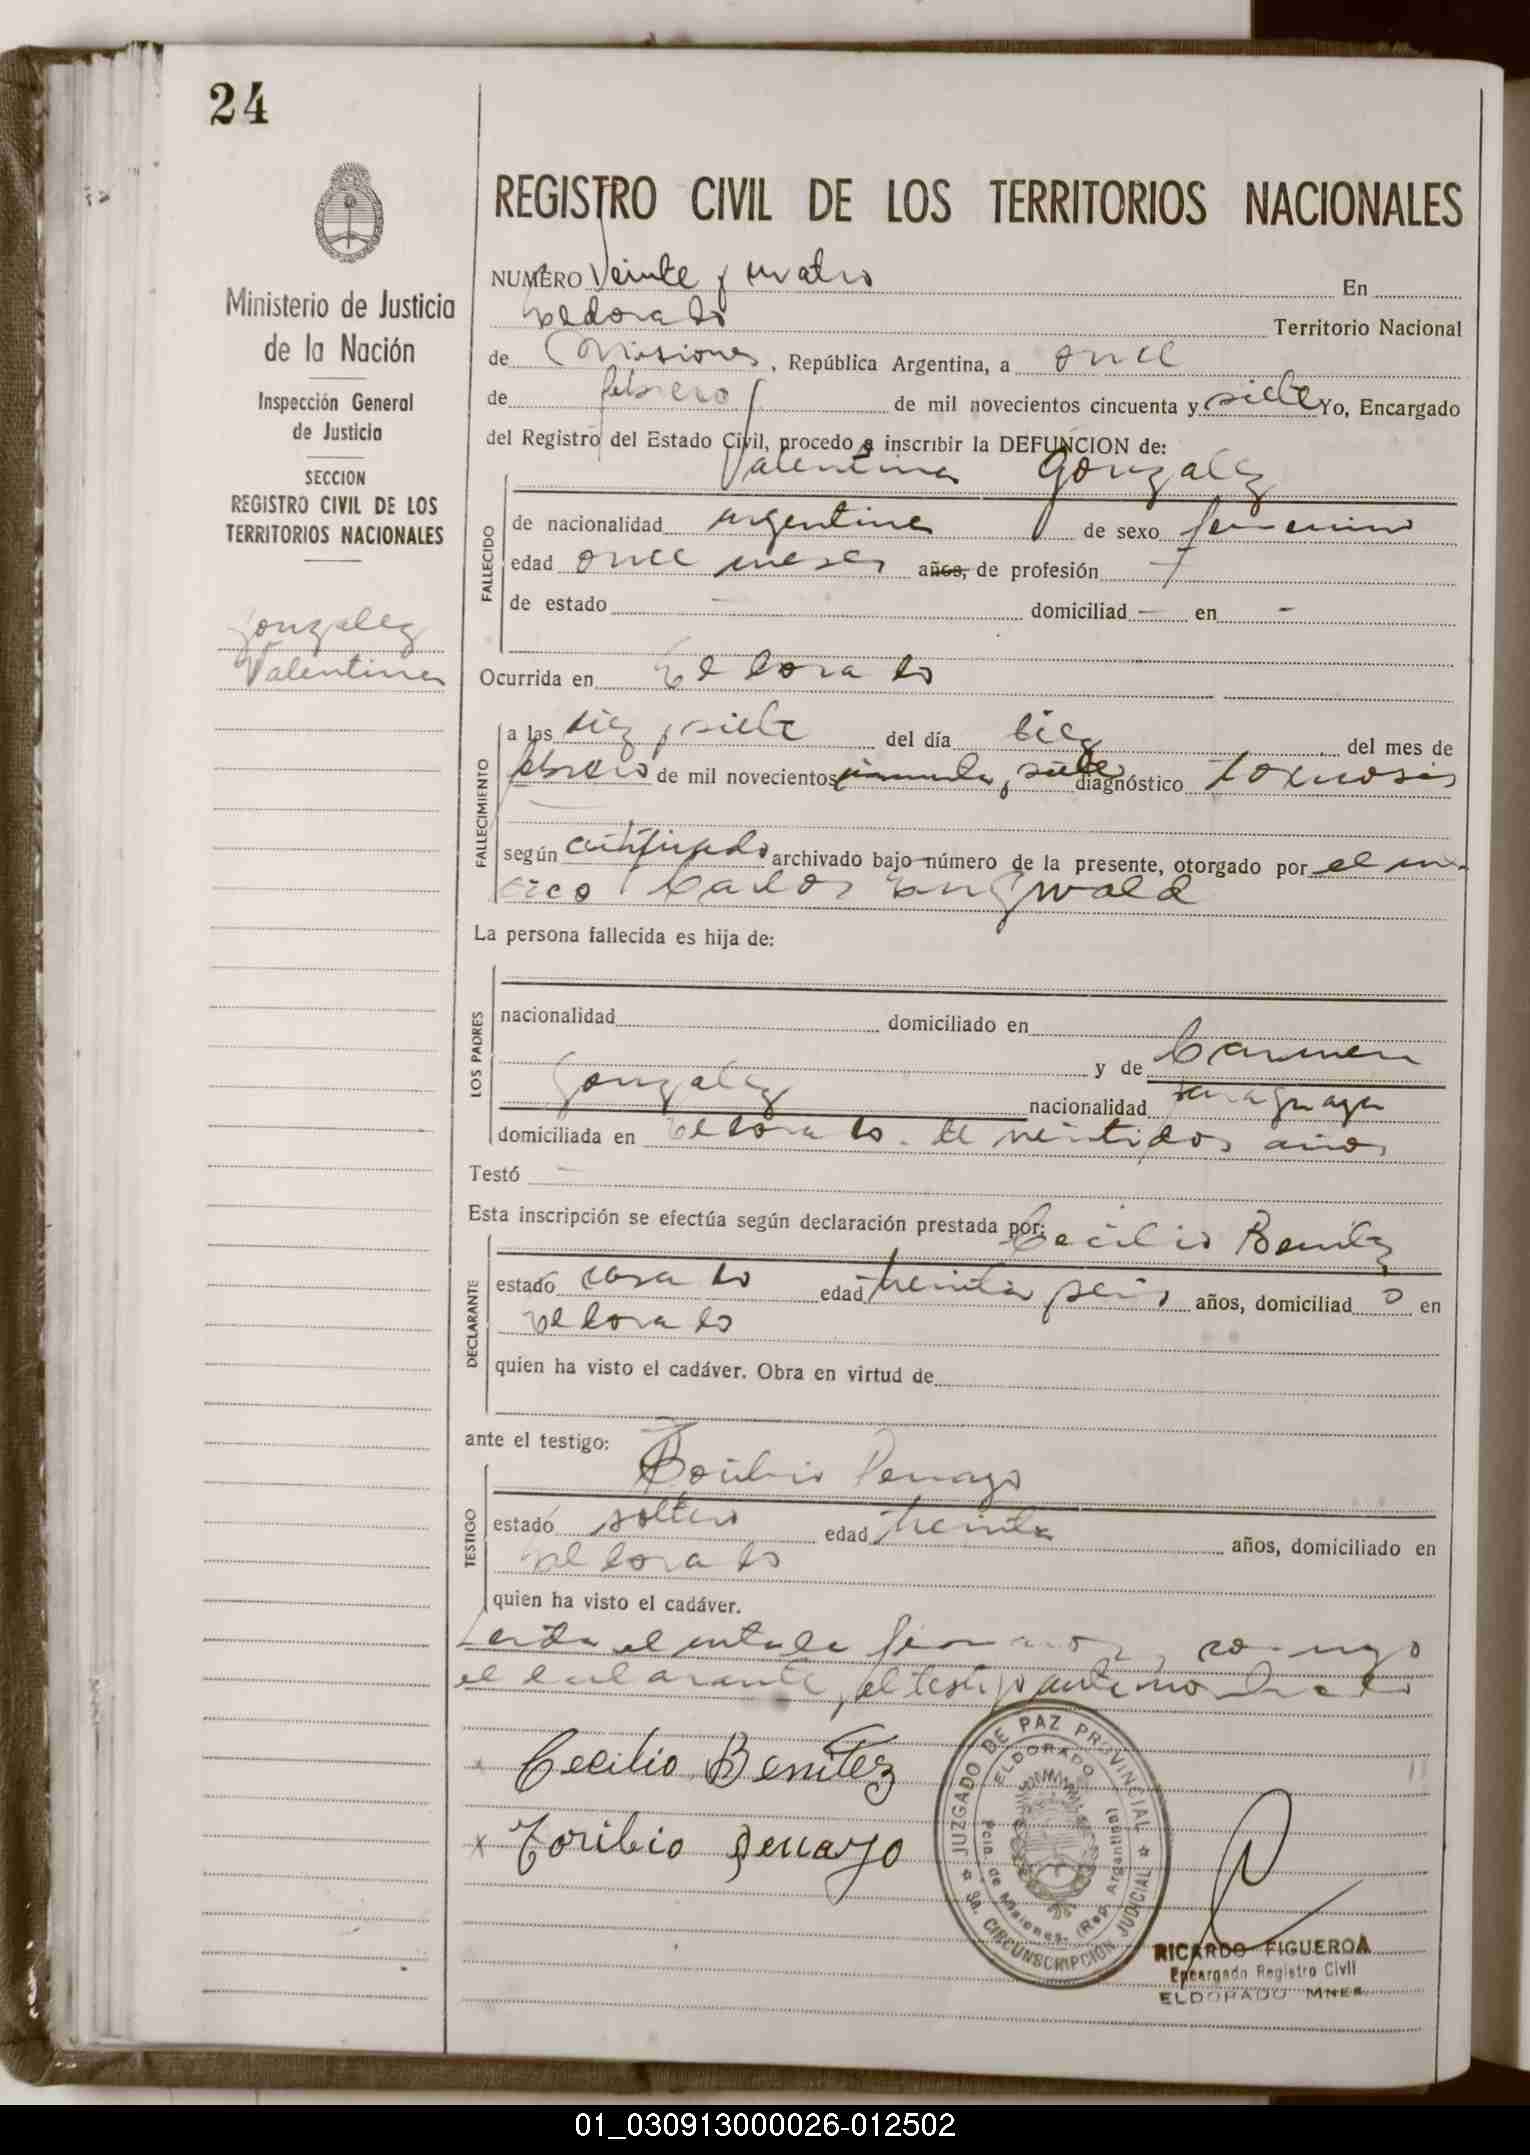 24
REGISTRO CIVIL DE LOS TERRITORIOS NACIONALES
Ministerio de Justicia
de la Nación
Inspección General
de Justicia
SECCION
REGISTRO CIVIL DE LOS
TERRITORIOS NACIONALES
Gonzalez
Valentina
NUMERO Veinte y cuatro En
Eldorado Territorio Nacional
de Misiones, República Argentina, a once
de febrero de mil novecientos cincuenta y siete Yo, Encargado
del Registro del Estado Civil, procedo a inscribir la DEFUNCION de:
Valentina Gonzalez
FALLECIDO
de nacionalidad argentina de sexo femenino
edad once meses años, de profesión -
de estado - domiciliad - en -
Ocurrida en Eldorado
FALLECIMIENTO
a las diez y siete del día diez del mes de
febrero de mil novecientos cincuenta y siete diagnóstico toxicosis
según certificado archivado bajo número de la presente, otorgado por el me-
dico Carlos
La persona fallecida es hija de:
LOS PADRES
nacionalidad domiciliado en
y de Carmen
Gonzalez nacionalidad paraguaya
domiciliada en Eldorado. de veintidos años
Testó -
Esta inscripción se efectúa según declaración prestada por: Cecilio Benitez
DECLARANTE
estado casado edad treinta y seis años, domiciliad o en
Eldorado
quien ha visto el cadáver. Obra en virtud de
ante el testigo:
Toribio Penayo
TESTIGO
estado soltero edad treinta años, domiciliado en
Eldorado
quien ha visto el cadáver.
Leida el acta la firman conmigo
el declarante y el testigo
Cecilio Benitez
x Toribio Penayo
JUZGADO DE PAZ PROVINCIAL
ELDORADO
Pcia. de Misiones. (Rep. Argentina)
3a. CIRCUNSCRIPCIÓN JUDICIAL
RICARDO FIGUEROA
Encargado Registro Civil
ELDORADO MNES.
01_030913000026-012502